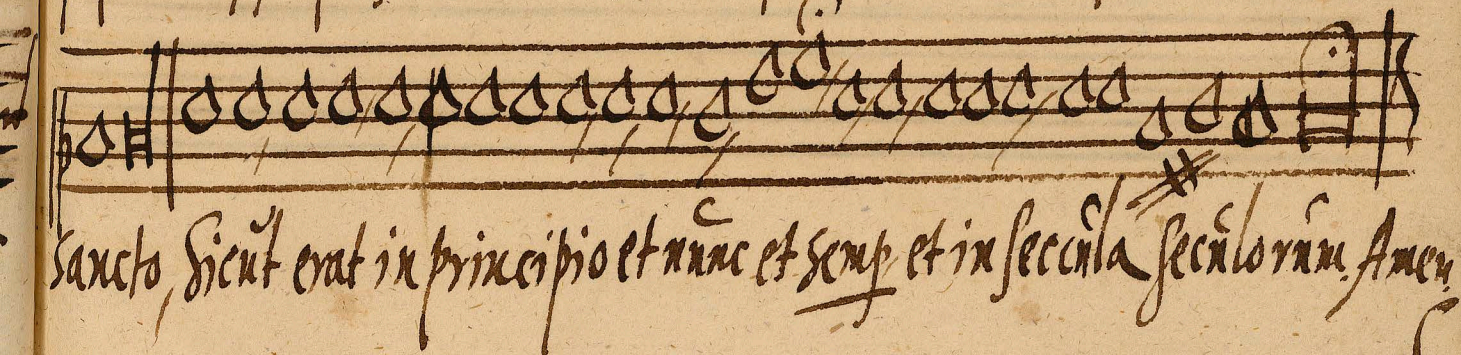 sancto, sicut erat in principio et nunc et semp et in seccula seculorum. Amen.